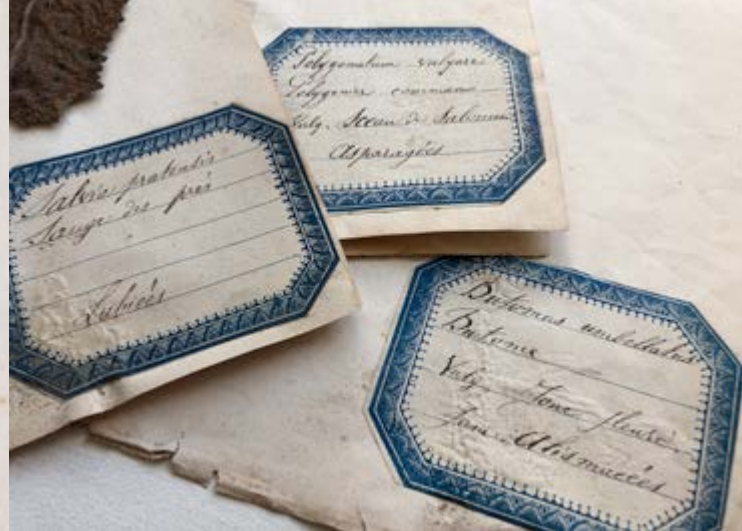 Salvia pratensis
Sauge des prés
Labiées
Polygonatum vulgare
Polygonée commune
Vulg. Sceau de Salomon
Asparagées
Butomus umbellatus
Butome
Vulg. Jonc fleuri.
Fam. Alismacées